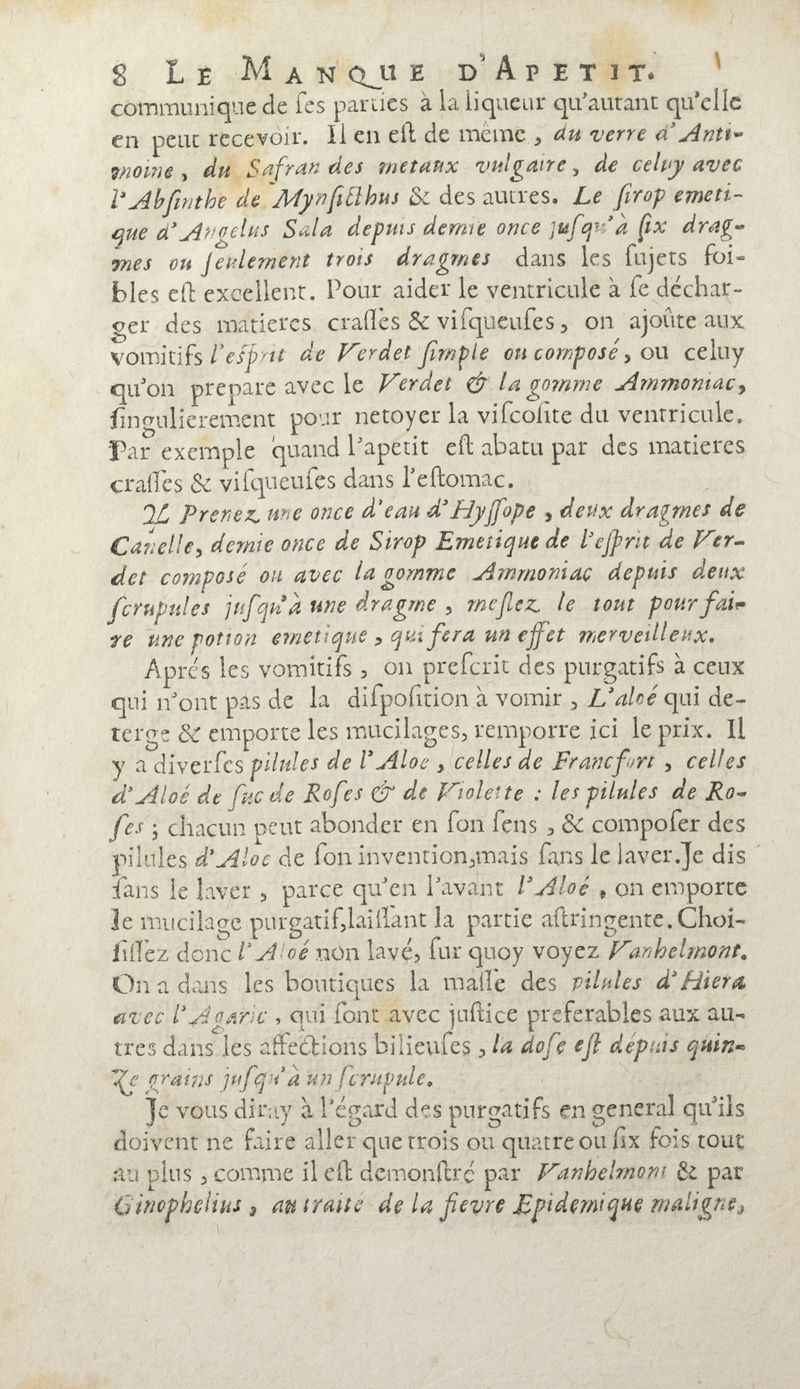 8 LE MANQUE D'APETIT.
communique de ſes parties à la liqueur qu'autant qu'elle
en peut recevoir. Il en eſt de même, du verre d'Anti-
moine, du Safran des metaux vulgaire, de celuy avec
l'Abſinthe de Mynſicthus & des autres. Le ſirop emeti-
que d'Angelus Sala depuis demie once juſqu'à ſix drag-
mes ou ſeulement trois dragmes dans les ſujets foi-
bles eſt excellent. Pour aider le ventricule à ſe déchar-
ger des matieres craſſes & viſqueuſes, on ajoûte aux
vomitifs l'eſprit de Verdet ſimple ou composé, ou celuy
qu'on prepare avec le Verdet & la gomme Ammoniac,
ſingulierement pour netoyer la viſcoſite du ventricule.
Par exemple quand l'apetit eſt abatu par des matieres
craſſes & viſqueuſes dans l'eſtomac.
℞ Prenez une once d'eau d'Hyſſope, deux dragmes de
Canelle, demie once de Sirop Emetique de l'eſprit de Ver-
det composé ou avec la gomme Ammoniac depuis deux
ſcrupules juſqu'à une dragme, meſlez le tout pour fai-
re une potion emetique, qui fera un effet merveilleux.
Aprés les vomitifs, on preſcrit des purgatifs à ceux
qui n'ont pas de la diſpoſition à vomir, L'aloé qui de-
terge & emporte les mucilages, remporre ici le prix. Il
y a diverſes pilules de l'Aloe, celles de Francfort, celles
d'Aloé de ſuc de Roſes & de Violette : les pilules de Ro-
ſes ; chacun peut abonder en ſon ſens, & compoſer des
pilules d'Aloe de ſon invention,mais ſans le laver.Je dis
ſans le laver, parce qu'en l'avant l'Aloé, on emporte
le mucilage purgatif,laiſſant la partie aſtringente.Choi-
ſiſſez donc l'Aloé non lavé, ſur quoy voyez Vanhelmont.
On a dans les boutiques la maſſe des pilules d'Hiera
avec l'Agaric, qui ſont avec juſtice preferables aux au-
tres dans les affections bilieuſes, la doſe eſt dépuis quin-
ze grains juſqu'à un ſcrupule.
Je vous diray à l'égard des purgatifs en general qu'ils
doivent ne faire aller que trois ou quatre ou ſix fois tout
au plus, comme il eſt demonſtré par Vanhelmont & par
Ginophelius, au traité de la fievre Epidemique maligne,